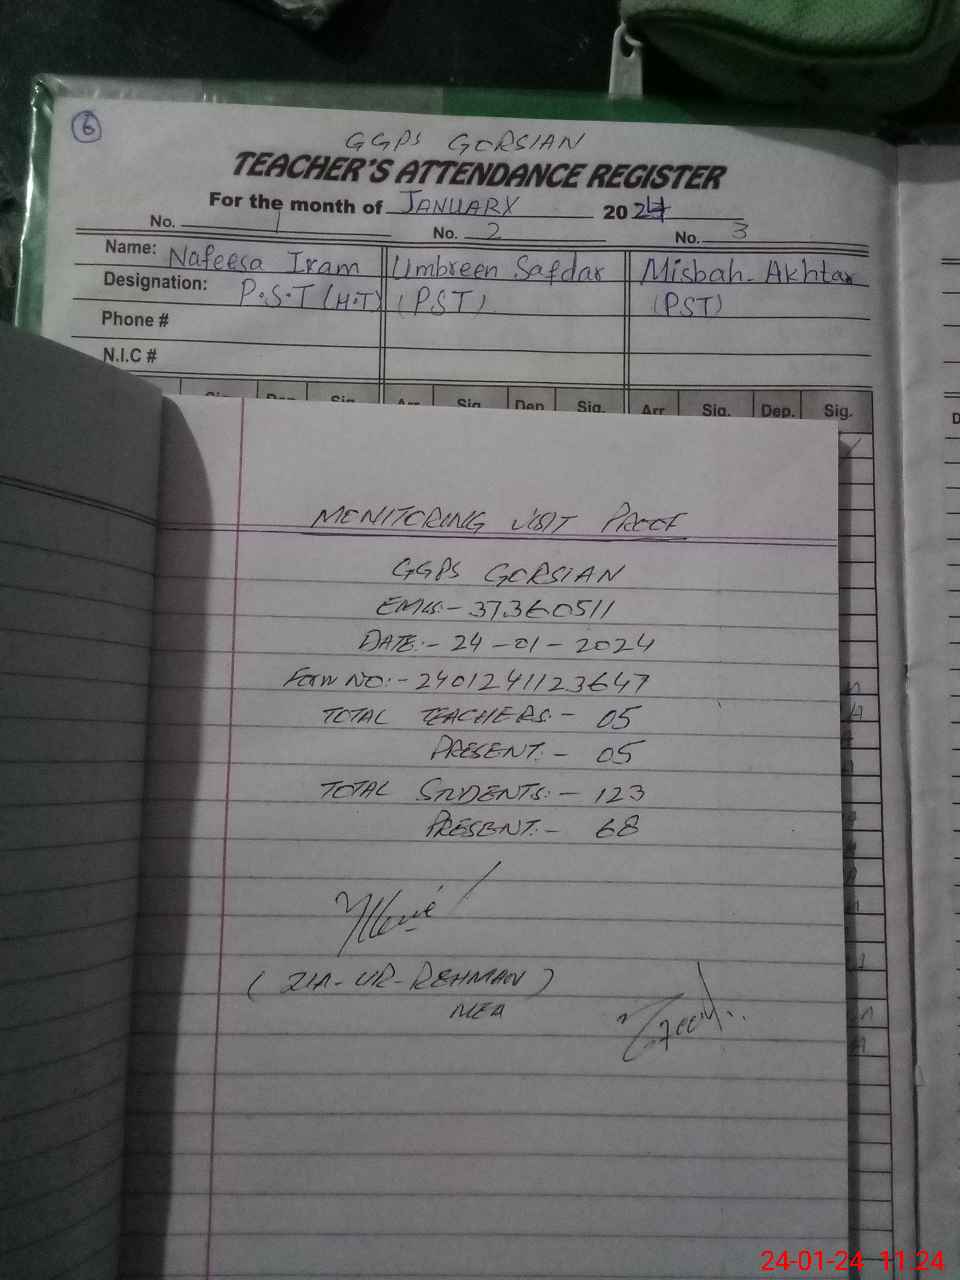 6
GGPS GORSIAN
TEACHER'S ATTENDANCE REGISTER
For the month of JANUARY 2024
No. 1 No. 2 No. 3
Name: Nafeesa Iram Umbreen Safdar Misbah-Akhtar
Designation: P.S.T (H.T) (PST) (PST)
Phone #
N.I.C #
Sig. Dep. Sig. Arr. Sig. Dep. Sig. Arr. Sig. Dep. Sig.
MENITORING VISIT PROOF
GGPS GORSIAN
EMIS:- 37360511
DATE:- 24-01-2024
FORM NO:- 2401241123647
TOTAL TEACHERS:- 05
PRESENT:- 05
TOTAL STUDENTS:- 123
PRESENT:- 68
(ZIA-UR-REHMAN)
MEA
24-01-24 11:24